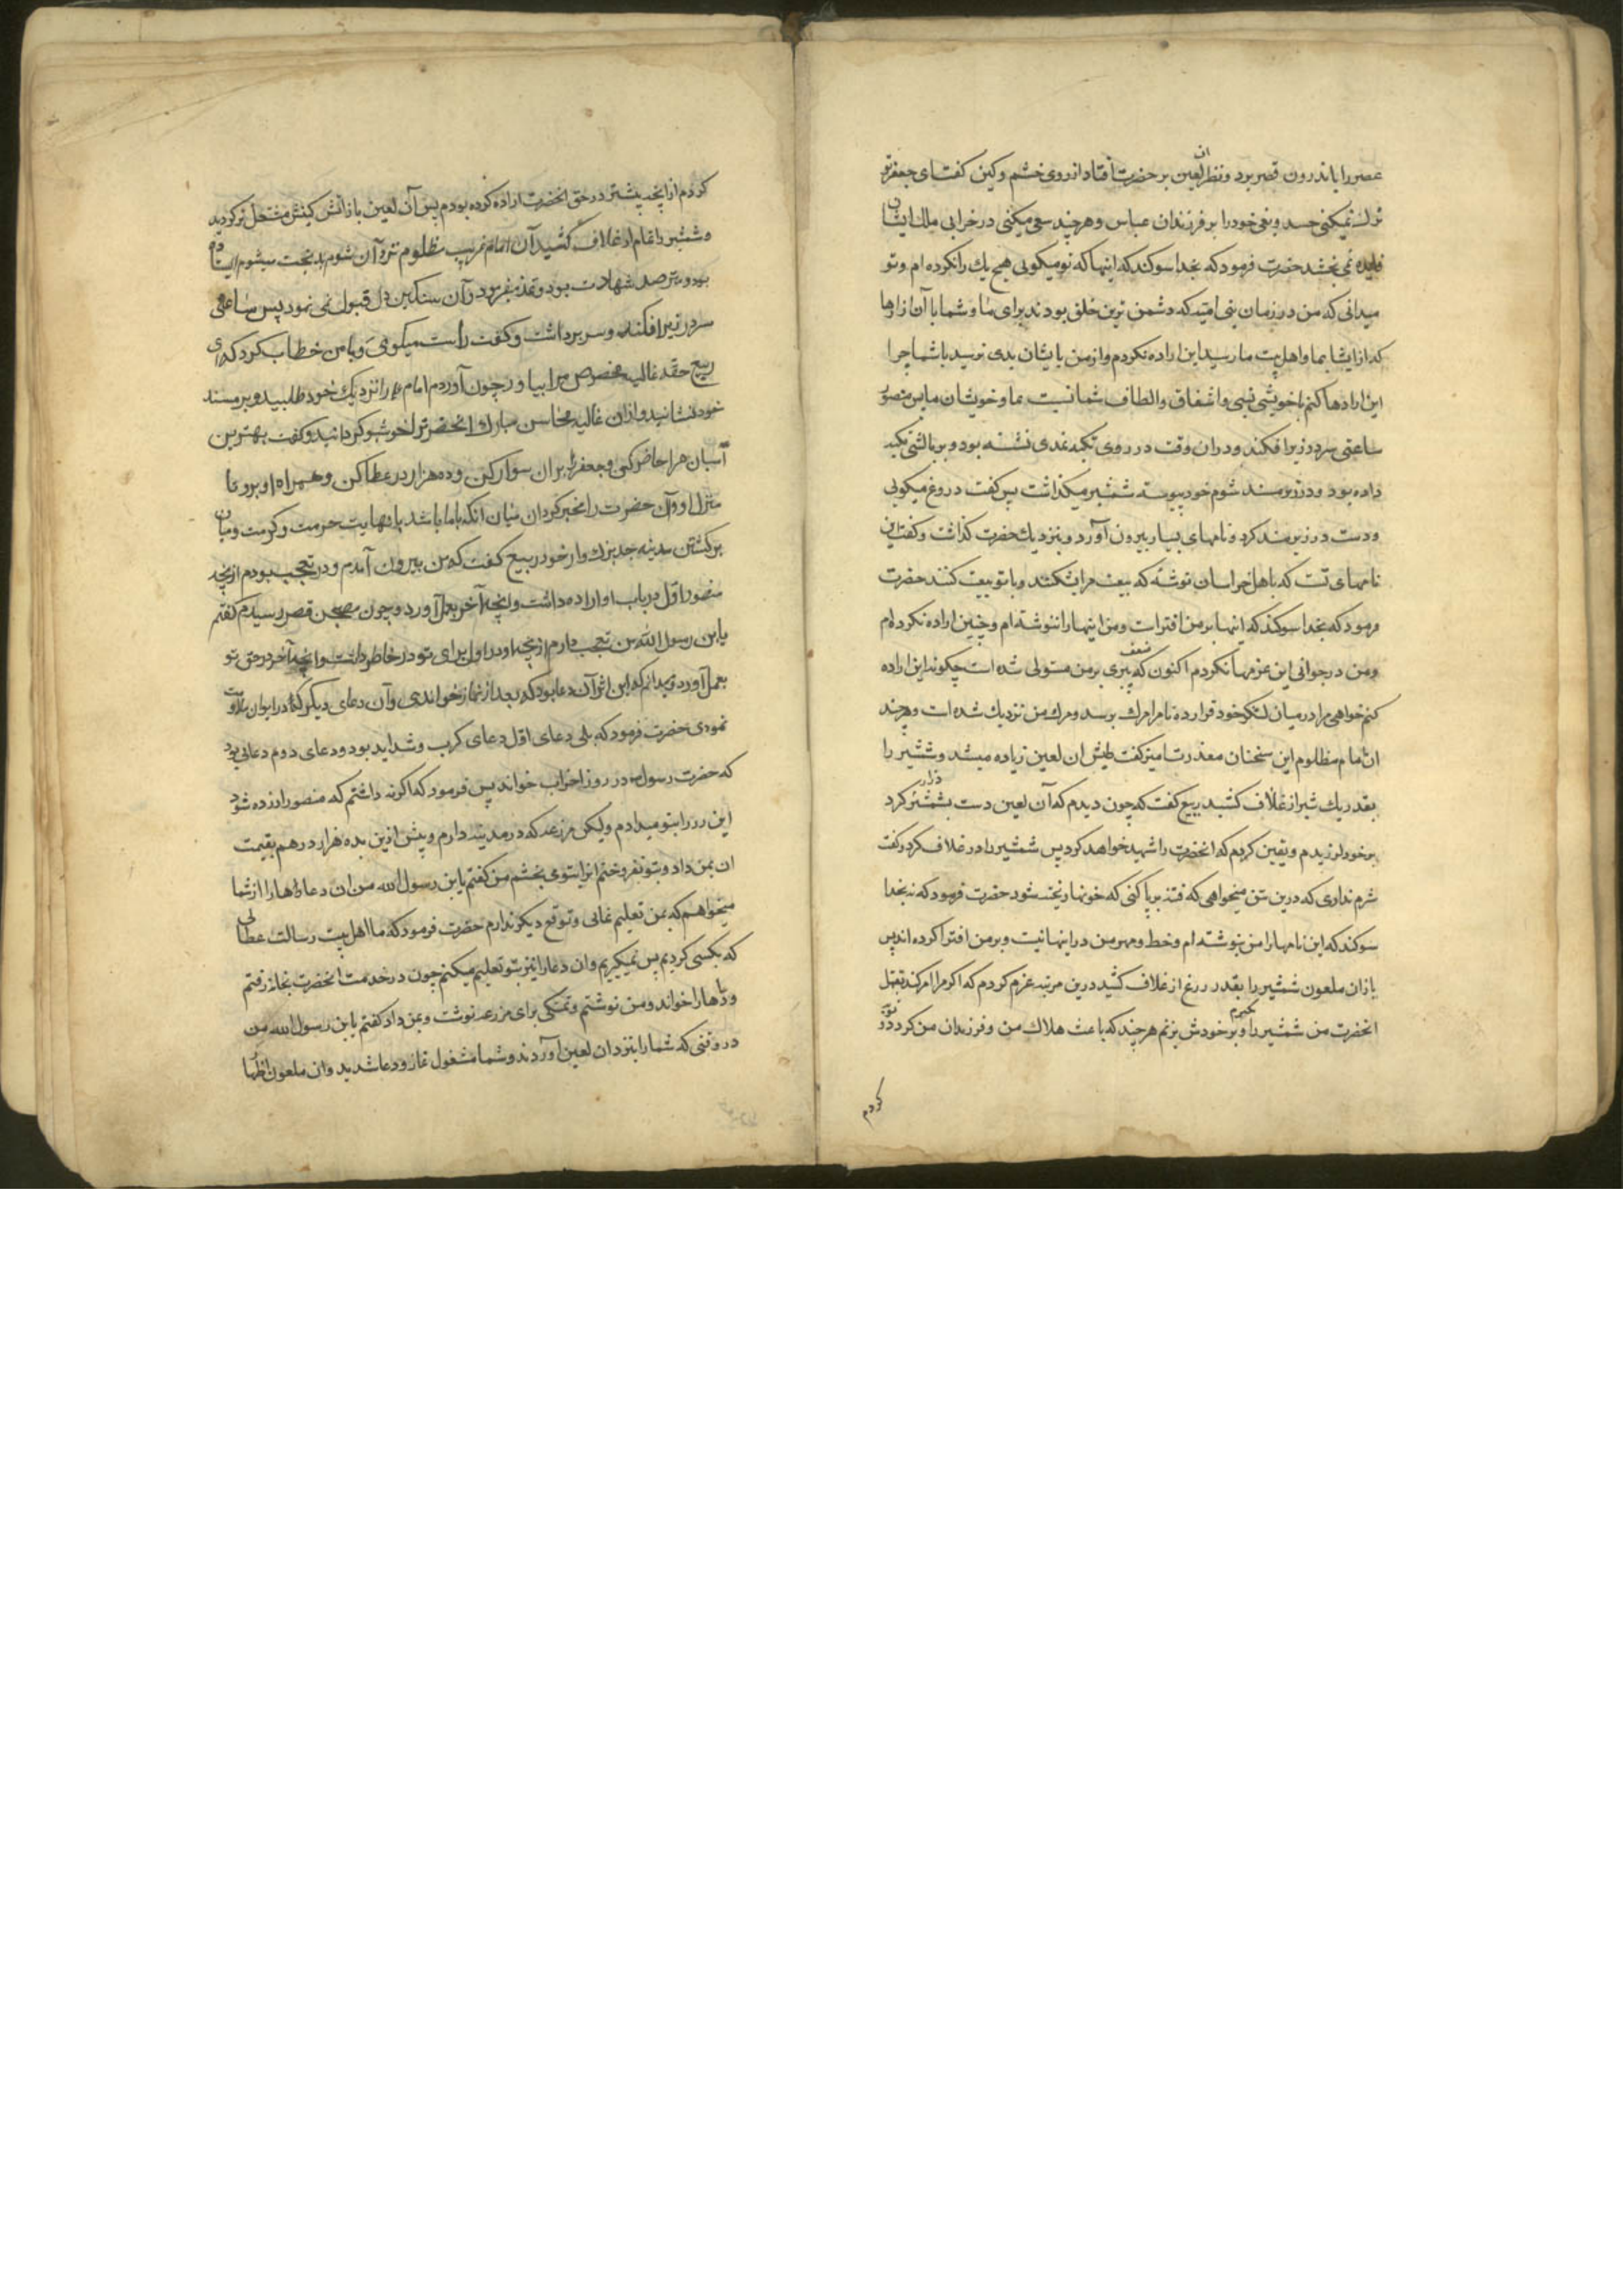 عصر را باندرون قصر برد و نظر ان لعین بر حضرت افتاد از روی خشم و کین گفت ای جعفر تو
ترک نمیکنی حسد و بغی خود را بر فرزندان عباس و هر چند سعی میکنی در خرابی ملک ایشان
فایده نمی بخشد حضرت فرمود که بخدا سوکند که اینها که تو میکوئی هیچ یک را نکرده ام و تو
میدانی که من در زمان بنی امیه که دشمن ترین خلق بودند برای ما و شما با آن ازارها
که از ایشان بما و اهل بیت ما رسید این اراده نکردم و از من بایشان بدی نرسید با شما چرا
این ارادها کنم با خویشی نسبی و اشفاق و الطاف شما نسبت بما و خویشان ما پس منصور
ساعتی سر در زیر افکند و در ان وقت در روی تکیه نمدی نشسته بود و بر بالشی تکیه
داده بود و در زیر مسند شوم خود پیوسته شمشیر میکذاشت پس گفت دروغ میکوئی
و دست در زیر مسند کرد و نامهای بسیار بیرون آورد و بنزدیک حضرت کذاشت و گفت این
نامهای تست که باهل خراسان نوشته که بیعت مرا بشکنند و با تو بیعت کنند حضرت
فرمود که بخدا سوکند که اینها بر من افتراست و من اینها را ننوشته ام و چنین اراده نکرده ام
و من در جوانی این عزمها نکردم اکنون که ضعف پیری بر من مستولی شده است چکونه این اراده
کنم خواهی مرا در میان لشکر خود قرار ده تا مرا مرک برسد و مرک من نزدیک شده است و هر چند
ان امام مظلوم این سخنان معذرت امیز گفت طیش ان لعین زیاده میشد و شمشیر را
بقدر یک شبر از غلاف کشید ربیع گفت که چون دیدم که آن لعین دست بشمشیر دراز کرد
بر خود لرزیدم و یقین کردم که انحضرت را شهید خواهد کرد پس شمشیر را در غلاف کرد و گفت
شرم نداری که درین سن میخواهی که فتنه برپا کنی که خونها ریخته شود حضرت فرمود که نه بخدا
سوکند که این نامها را من ننوشته ام و خط و مهر من در اینها نیست و بر من افترا کرده اند پس
باز ان ملعون شمشیر را بقدر ذرع از غلاف کشید درین مرتبه عزم کردم که اکر مرا امر کند بقتل
انحضرت من شمشیر را بکیرم و بر خودش بزنم هر چند که باعث هلاک من و فرزندان من کردد و توبه
کردم
کردم از انچه پیشتر در حق انحضرت اراده کرده بودم پس آن لعین باز اتش کینش مشتعل تر کردید
و شمشیر را تمام از غلاف کشید آن امام غریب مظلوم نزد آن شوم بدبخت میشوم ایستاده
بود و مترصد شهادت بود و عذر میفرمود و آن سنکین دل قبول نمی نمود پس ساعتی
سر در زیر افکند و سر برداشت و گفت راست میکوئی و با من خطاب کرد که ای
ربیع حقه غالیه مخصوص مرا بیاور چون آوردم امام را نزدیک خود طلبید و بر مسند
خود نشانید و ازان غالیه محاسن مبارک انحضرت را خوشبو کردانید و گفت بهترین
اسبان مرا حاضر کن و جعفر را بران سوار کن و ده هزار درم عطا کن و همراه او برو تا
منزل او و آن حضرت را مخیر کردان میان آنکه با ما باشد با نهایت حرمت و کرمت و میان
برکشتن بمدینه جد بزرکوار خود ربیع گفت که من بیرون آمدم و در تعجب بودم از انچه
منصور اول در باب او اراده داشت و انچه آخر بعمل آورد و چون بصحن قصر رسیدم گفتم
یابن رسول الله من تعجب دارم از انچه او در اول برای تو در خاطر داشت و انچه آخر در حق تو
بعمل آورد و میدانم که این اثر آن دعا بود که بعد از نماز خواندی و آن دعای دیکر که در ایوان تلاوت
نمودی حضرت فرمود که بلی دعای اول دعای کرب و شداید بود و دعای دوم دعائی بود
که حضرت رسول در روز احزاب خواند پس فرمود که اکر نه داشتم که منصور ازرده شود
این زر را بتو میدادم ولیکن مزرعه که در مدینه دارم و پیش ازین ده هزار درهم بقیمت
ان بمن داد و بتو نفروختم انرا بتو می بخشم من گفتم یابن رسول الله من ان دعاها را از شما
میخواهم که بمن تعلیم نمائی و توقع دیکر ندارم حضرت فرمود که ما اهل بیت رسالت عطائی
که بکسی کردیم پس نمیکیریم و ان دعا را نیز بتو تعلیم میکنم چون در خدمت انحضرت بخانه رفتم
دعاها را خواند و من نوشتم و تمسکی برای مزرعه نوشت و بمن داد گفتم یابن رسول الله من
در وقتی که شما را بنزد ان لعین آوردند و شما مشغول نماز و دعا شدید و ان ملعون اظهار